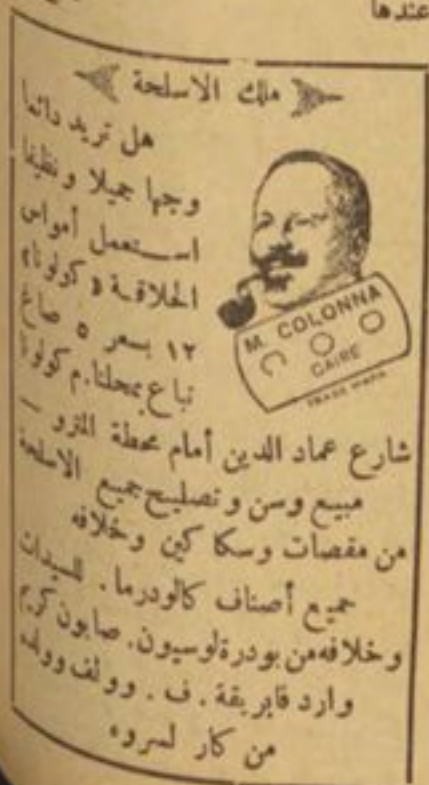 عندها
ملك الاسلحة
هل تريد دائما
وجها جميلا ونظيفا
استعمل أمواس
الحلاقة «كولونا»
١٢ بسعر ٥ صاغ
تباع بمحلنا . م كولونا
M. COLONNA
CAIRE
TRADE MARK
شارع عماد الدين أمام محطة المترو —
مبيع وسن وتصليح جميع الاسلحة
من مقصات وسكاكين وخلافه
جميع أصناف كالودرما . للسيدات
وخلافه من بودرة لوسيون . صابون كريم
وارد فابريقة . ف . وولف وولده
من كارلسروه